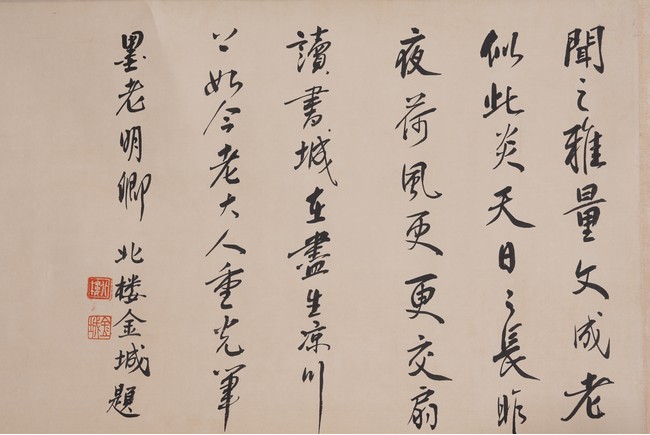 聞之雅量文成老
似此炎天日之長昨
夜荷風更更交扇
讀書城在盡生涼川
上如今老大人重光筆
墨老明卿
北楼金城題